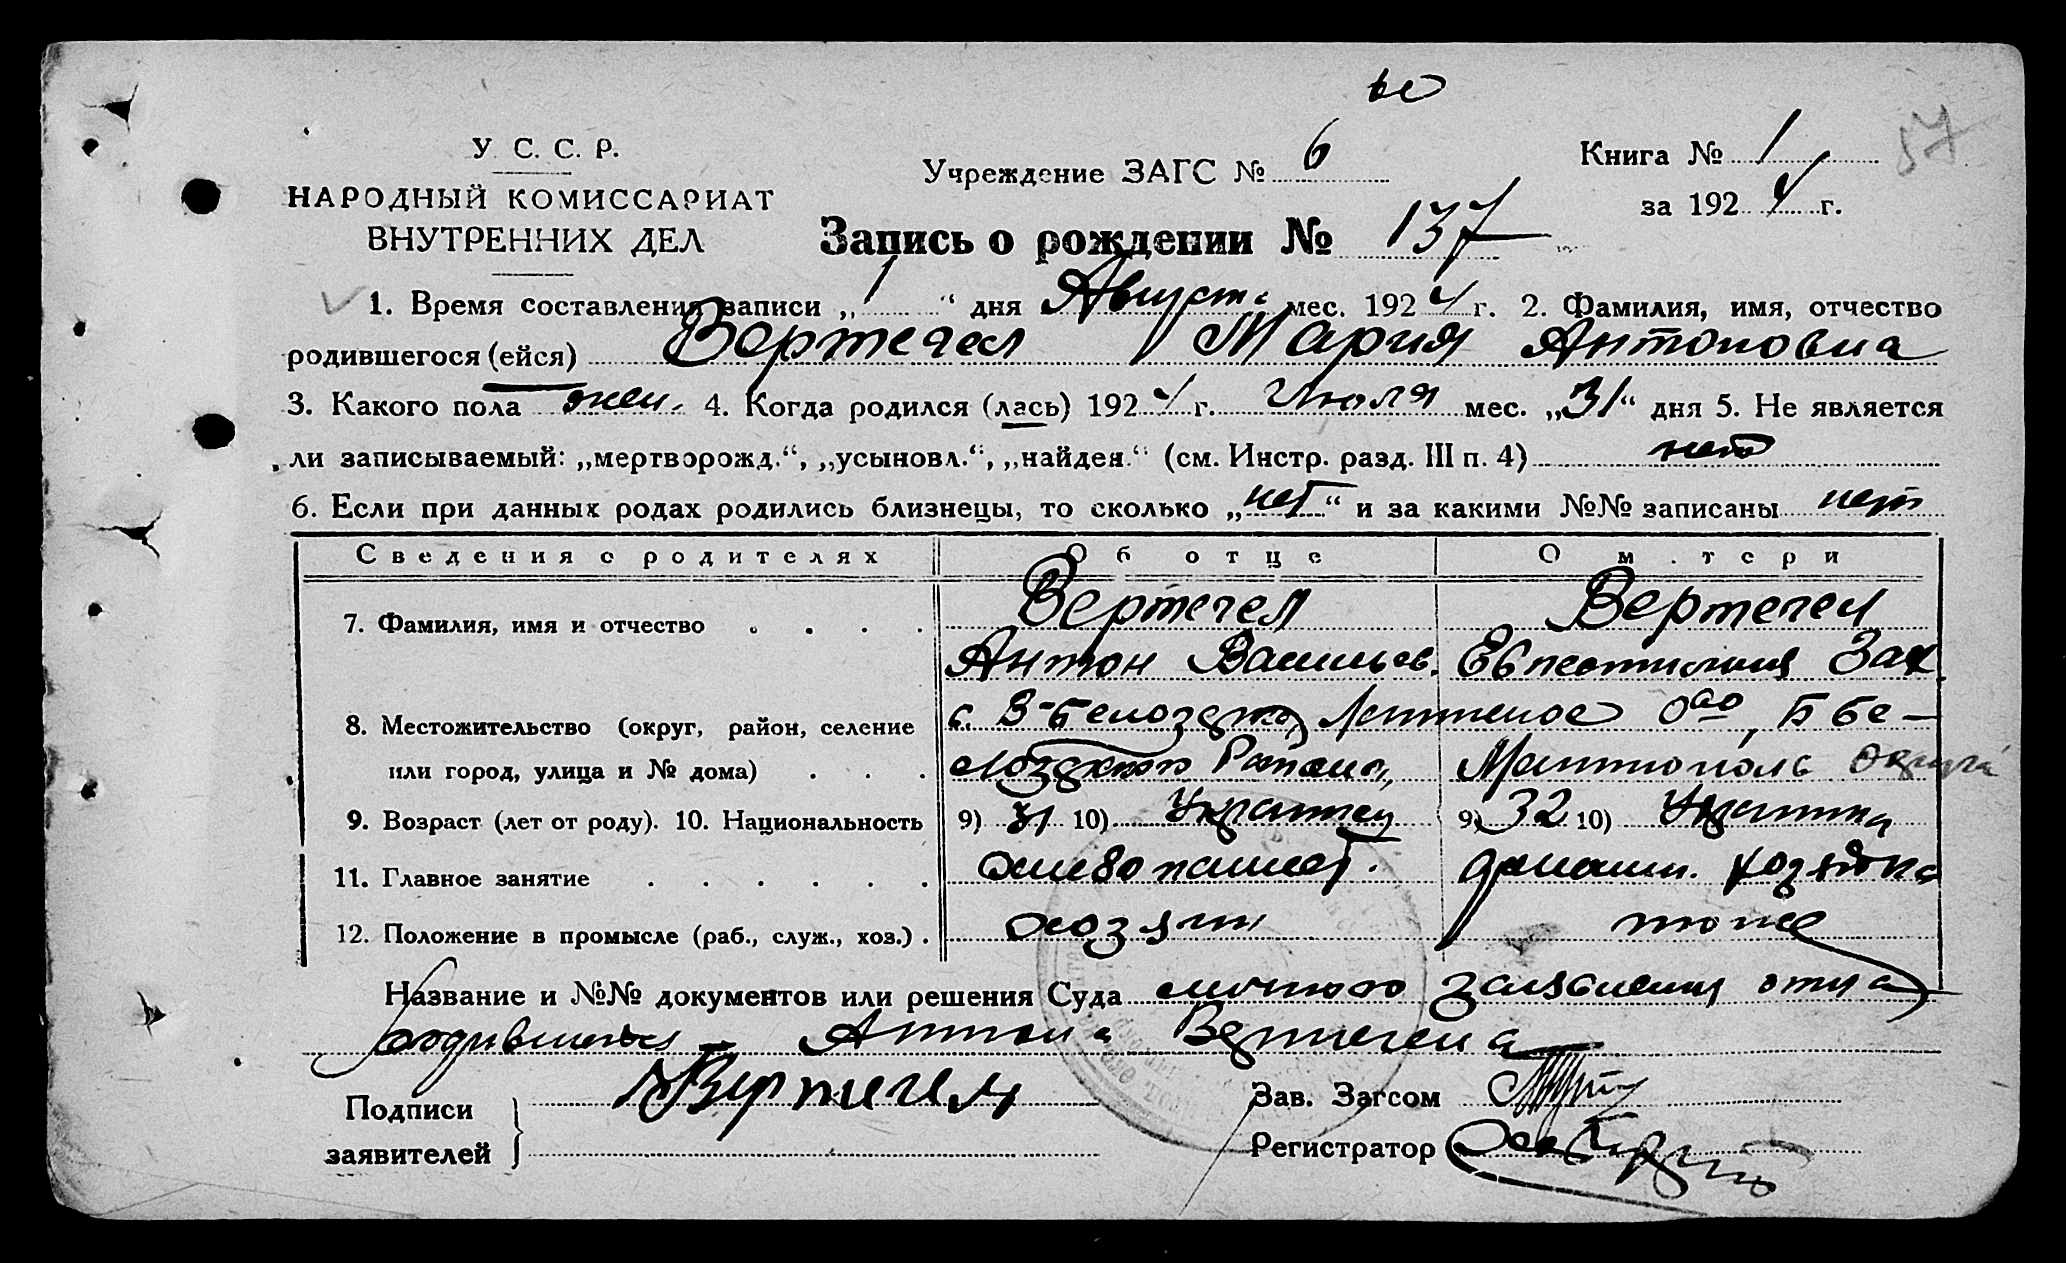 57
У. С. С. Р.
НАРОДНЫЙ КОМИССАРИАТ
ВНУТРЕННИХ ДЕЛ
Учреждение ЗАГС № 6
Книга № 1
за 1924 г.
Запись о рождении № 137
1. Время составления записи „1“ дня Августа мес. 1924 г. 2. Фамилия, имя, отчество
родившегося (ейся) Вертегел Мария Антоновна
3. Какого пола жен. 4. Когда родился (лась) 1924 г. Июля мес. „31“ дня 5. Не является
ли записываемый: „мертворожд.“, „усыновл.“, „найден.“ (см. Инстр. разд. III п. 4) нет
6. Если при данных родах родились близнецы, то сколько „нет“ и за какими №№ записаны нет
Сведения о родителях Об отце О матери
7. Фамилия, имя и отчество Вертегел Вертегел
Антон Васильев. Зах.
8. Местожительство (округ, район, селение с.
или город, улица и № дома) округа
9. Возраст (лет от роду). 10. Национальность 9) 31 10) Украинец 9) 32 10) Украинка
11. Главное занятие хлебопашест. домашн. хозяйка
12. Положение в промысле (раб., служ., хоз.) хозяин тоже
Название и №№ документов или решения Суда личного заявления отца
Антона Вертегела
Подписи
заявителей
Вертегел
Зав. Загсом
Регистратор